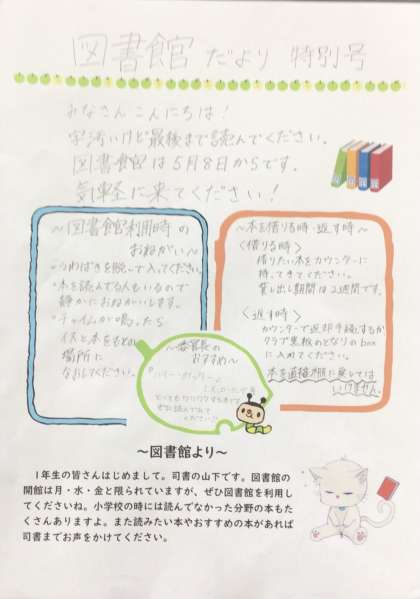 図書館だより 特別号
みなさんこんにちは!
字汚いけど最後まで読んでください。
図書館は5月8日からです。
気軽に来てください!
~図書館利用時の
おねがい~
・うわばきを脱いで入ってください。
・本を読んでる人もいるので
静かにおねがいします。
・チャイムが鳴ったら
イスと本をもとの
場所に
なおしてください。
~本を借りる時・返す時~
<借りる時>
借りたい本をカウンターに
持ってきてください。
貸し出し期間は2週間です。
<返す時>
カウンターで返却手続きするか
クラブ黒板のとなりのbox
に入れてください。
本を直接棚に戻しては
いけません。
~委員長の
おすすめ~
ぜひ読んでみて
ください!
~図書館より~
1年生の皆さんはじめまして。司書の山下です。図書館の
開館は月・水・金と限られていますが、ぜひ図書館を利用し
てくださいね。小学校の時には読んでなかった分野の本もた
くさんありますよ。また読みたい本やおすすめの本があれば
司書までお声をかけてください。